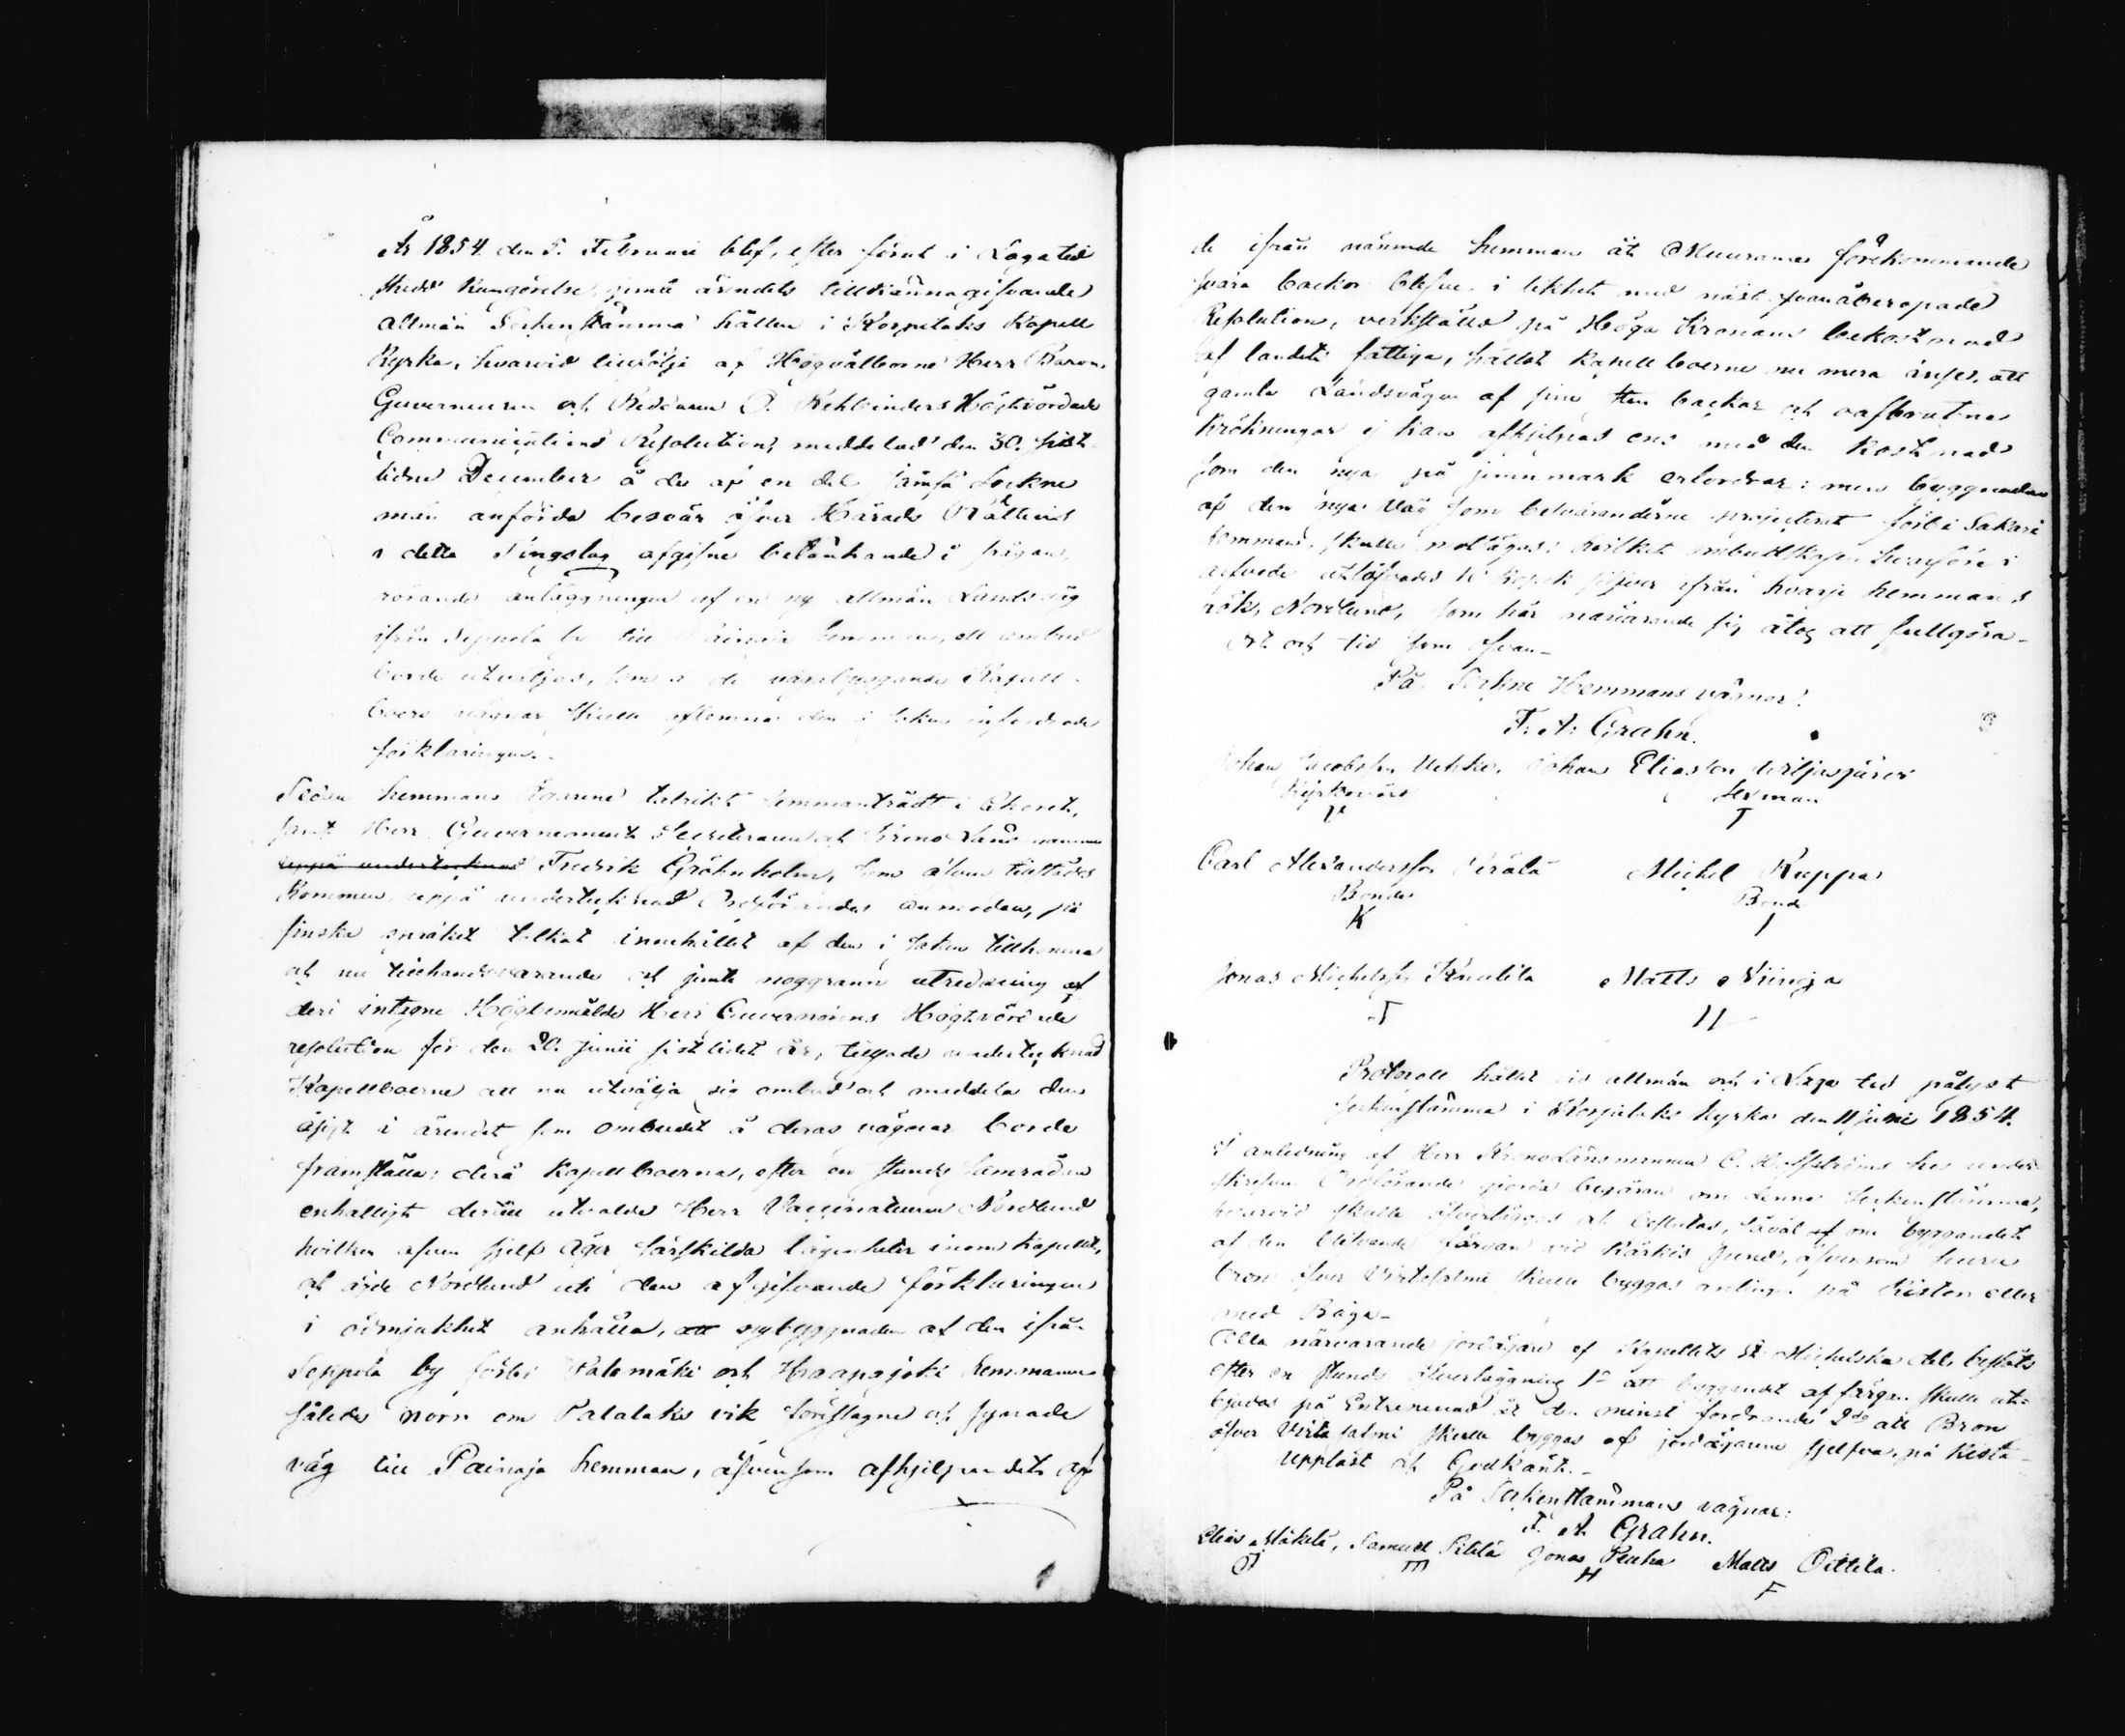 År 1854 den 5. Februari blef, efter förut i Laga tid
skedd kungörelse jemte ärendets tillkännagifvande
allmän Sockenstämma hållen i Korpilaks Kapell
Kyrka, hvarvid till följe af Högvälborne Herr Baron,
Guverneuren och Riddaren Rehbinders Högtvördade
Communications Resolution, meddelad den 30. sist-
lidne December å de af en del Jämsä Sockne
män anförda besvär öfver Härads Rättens
i detta Tingslag afgifne betänkande i frågan
rörande anläggningen af en ny allmän Landsväg
ifrån Seppola by till hemman, ett ombud
borde utväljas, som å de vägbyggande Kapell-
boers vägnar skulle aflemna den i saken infordrade
förklaringen.-
Sedan hemmans Ägarene talrikt sammanträdt i Choret,
samt Herr Guvernements Secreteraren och Krono Länsmannen
uppå undertecknad Fredrik Gröhnholm, som äfven tillstädes
kommen, uppå undertecknad Ordförandes anmodan, på
finska språket tolkat innehållet af den i saken tillkomna
och nu tillhandavarande och jemte noggrann utredning af
deri intagne Högbemälde Herr Guverneurens Högtvördade
resolution för den 20. Junii sistlidet år, tillsade undertecknad
Kapellboerne att nu utvälja sig ombud och meddela den
åsigt i ärendet som ombudet å deras vägnar borde
framställa; derå Kapellboerna, efter en stunds samråden
enhälligt dertill utvalde Herr Vaccinateuren Nordlund
hvilken äfven sjelf äger särskilda lägenheter inom Kapellet,
och ägde Nordlund uti den afgifvande förklaringen
i ödmjukhet anhålla, att nybyggnaden af den ifrån
Seppola by förbi Palomäki och Haapajoki hemmanen
således norr om Palalaks vik föreslagne och synade
väg till Painaja hemman, äfvensom afhjelpandet af
de ifrån nämnde hemman åt Muurame förekommande
svåra backor blefve i likhet med näst ofvanåberopade
Resolution, verkställd på Höga Kronans bekostnad
af landets fattiga, hället Kapellboerne nu mera inse, att
gamla Landsvägen af sine backar och
krökningar ej kan afhjelpas ens med den kostnad
som den nya på jemnmark erfordrar: men byggnaden
af den nya väg som besväranderne projecterat förbi Sakari
hemman, skulle motsägas; hvilket ombudskap hvarföre i
arfvode utlofvades 10 kopek silfver ifrån hvarje hemmans
rök, Nordlund, som här närvarande sig åtog att fullgöra-
Ort och tid som ofvan-
På Sockne Hemmans vägnar:
F. A. Grahn.
Johan Jacobsson Uchko, Johan Eliasson
Kyrkovärd Sexman
Carl Alexandersson Michel Ruppa
Bonde Bonde
K
Jonas Michelsson Knuutila Matts Niinoja
Protocoll hållet vid allmän och i Laga tid pålyst
sockenstämma i Korpilaks kyrka den 11 Juni 1854.
I anledning af Herr Krono Länsmannen C. Hoffströms hos under-
skrefven Ordförande gjorda begäran om denna Sockenstämma,
hvarvid skulle öfverläggas och beslutas, såväl af om byggandet
af den blifvande färgan vid Kärkis sund, äfvensom huru
bron öfver Virtasalmi skulle byggas antingen på Kistor eller
med Båga-
Alla närvarande jordägare af Kapellets St Michelska del beslöts
efter en stunds öfverläggning 1o att byggandet af färgan skulle ut-
bjudas på Entreprenad åt den minst fordrande 2do att Bron
öfver Virtasalmi skulle byggas af jordägarene sjelfva, på Kistor-
Uppläst och Godkänt.-
På Sockenstämmans vägnar:
F. A. Grahn.
Elias Mäkelä, Samuel Jonas Penha Matts Oittila.
H F